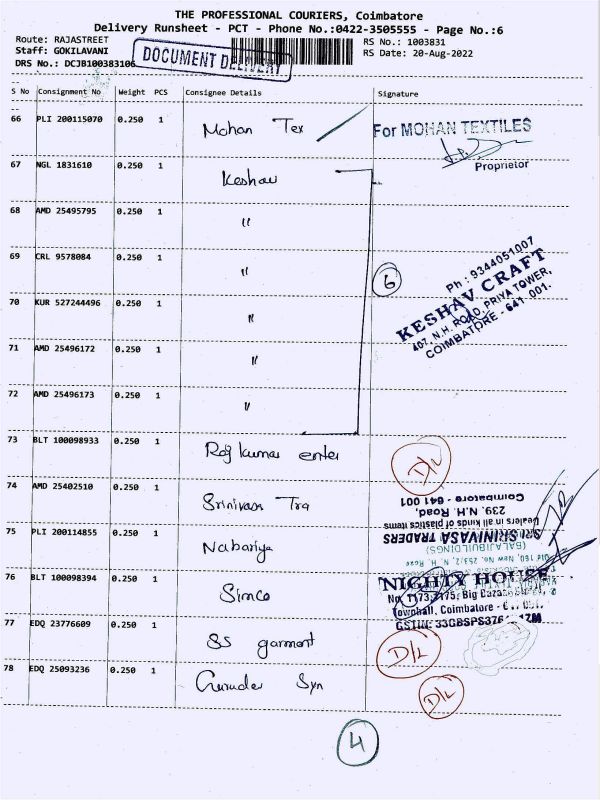 THE PROFESSIONAL COURIERS, Coimbatore
Delivery Runsheet - PCT - Phone No.:0422-3505555 - Page No.:6
Route: RAJASTREET
RS No.: 1003831
Staff: GOKILAVANI
RS Date: 20-Aug-2022
DRS No.: DCJB100383106
DOCUMENT DELIVERY
S No Consignment No Weight PCS Consignee Details Signature
66 PLI 200115070 0.250 1 Mohan Tex
For MOHAN TEXTILES
Proprietor
67 NGL 1831610 0.250 1 Keshav
68 AMD 25495795 0.250 1 "
69 CRL 9578084 0.250 1 "
6
Ph : 9344051007
KESHAV CRAFT
407, N.H. ROAD, PRIYA TOWER,
COIMBATORE - 641 001.
70 KUR 527244496 0.250 1 "
71 AMD 25496172 0.250 1 "
72 AMD 25496173 0.250 1 "
73 BLT 100098933 0.250 1 Raj kumar enter D/L
74 AMD 25402510 0.250 1 Srinivasa Tra
Coimbatore - 641 001
239, N.H. Road,
Dealers in all kinds of plastics items
SRI SRINIVASA TRADERS
75 PLI 200114855 0.250 1 Nabariya
(BALAJI BUILDINGS)
76 BLT 100098394 0.250 1 Simco
NIGHTY HOUSE
Big Bazaar
Townhall, Coimbatore -
77 EDQ 23776609 0.250 1 SS garment D/L
78 EDQ 25093236 0.250 1 Gurudev Syn D/L
4